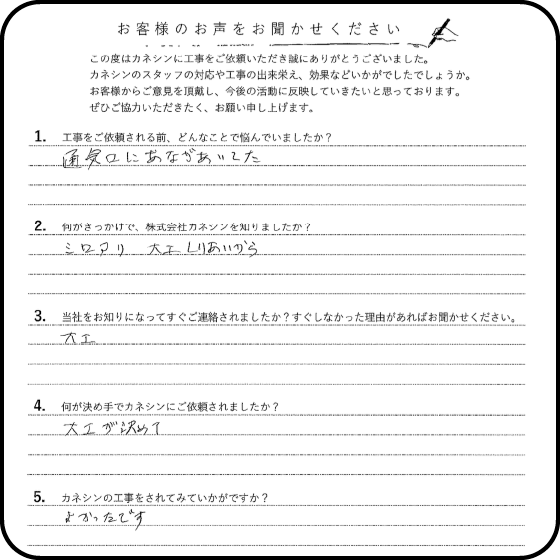 お客様のお声をお聞かせください
この度はカネシンに工事をご依頼いただき誠にありがとうございました。
カネシンのスタッフの対応や工事の出来栄え、効果などいかがでしたでしょうか。
お客様からご意見を頂戴し、今後の活動に反映していきたいと思っております。
ぜひご協力いただきたく、お願い申し上げます。
1. 工事をご依頼される前、どんなことで悩んでいましたか？
通気口にあながあいてた
2. 何がきっかけで、株式会社カネシンを知りましたか？
シロアリ 大工しりあいから
3. 当社をお知りになってすぐご連絡されましたか？すぐしなかった理由があればお聞かせください。
大工
4. 何が決め手でカネシンにご依頼されましたか？
大工が決めて
5. カネシンの工事をされてみていかがですか？
よかったです